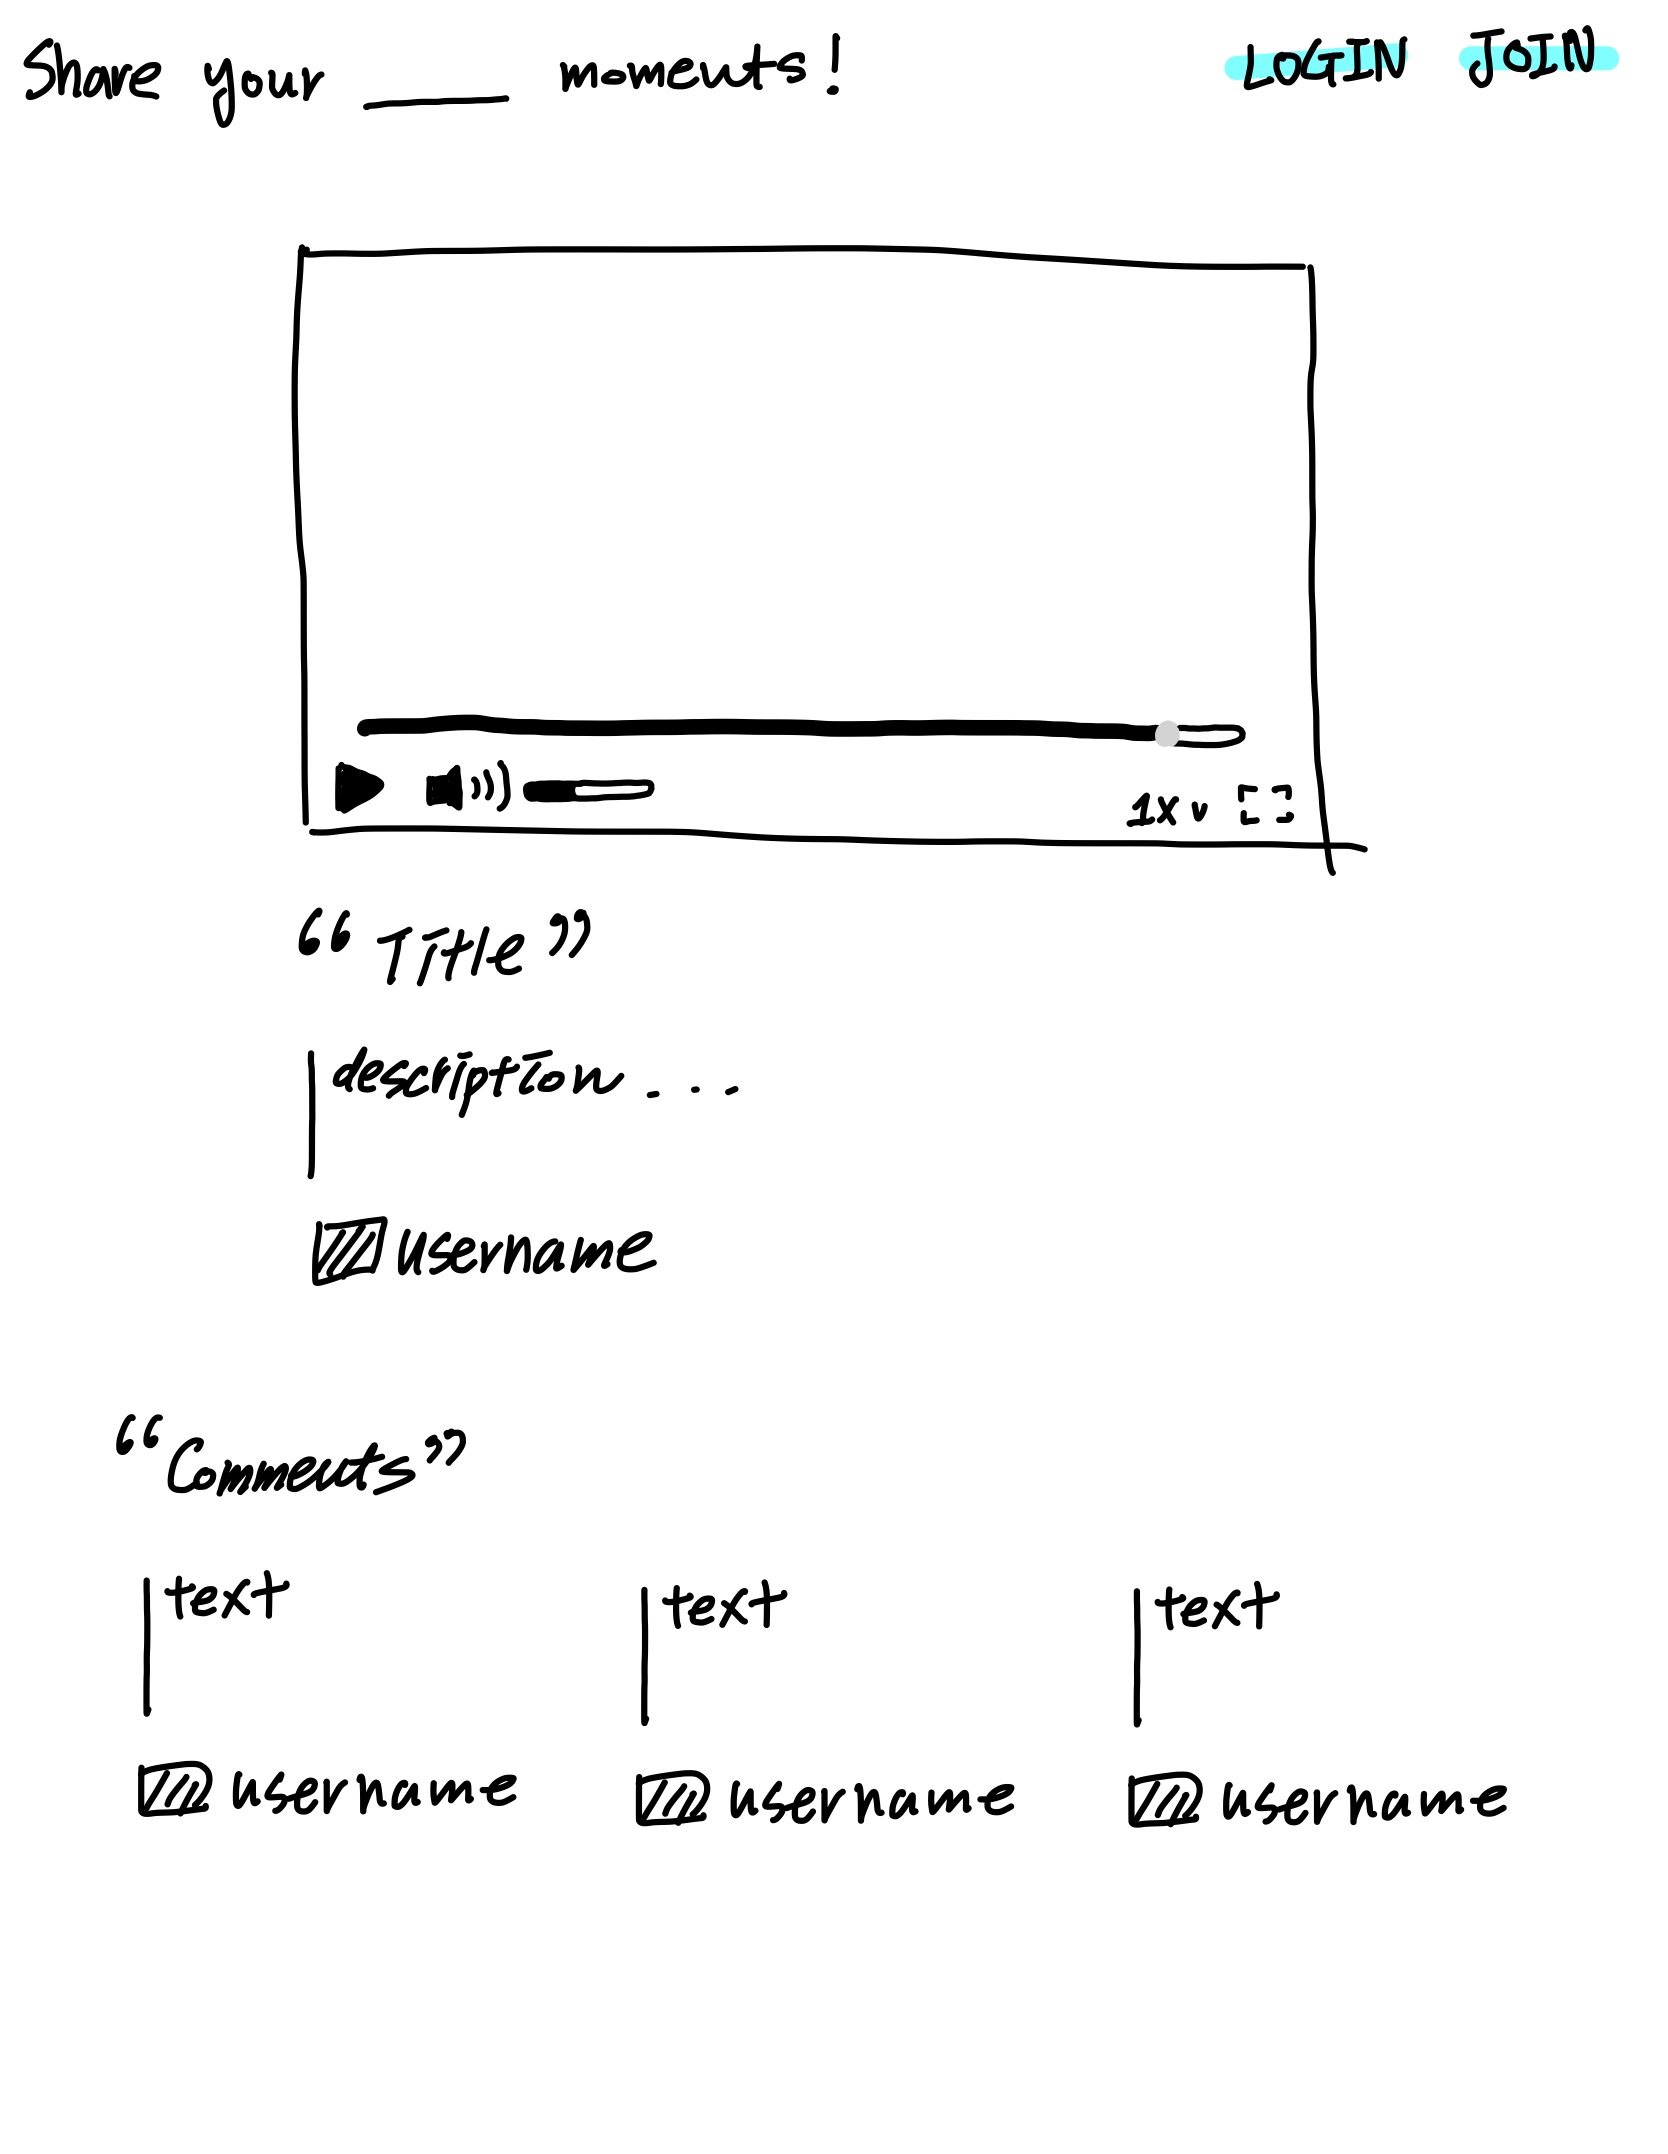 Share your ____ moments!
LOGIN JOIN
1X v
“Title”
description...
username
“Comments”
text text text
username username username